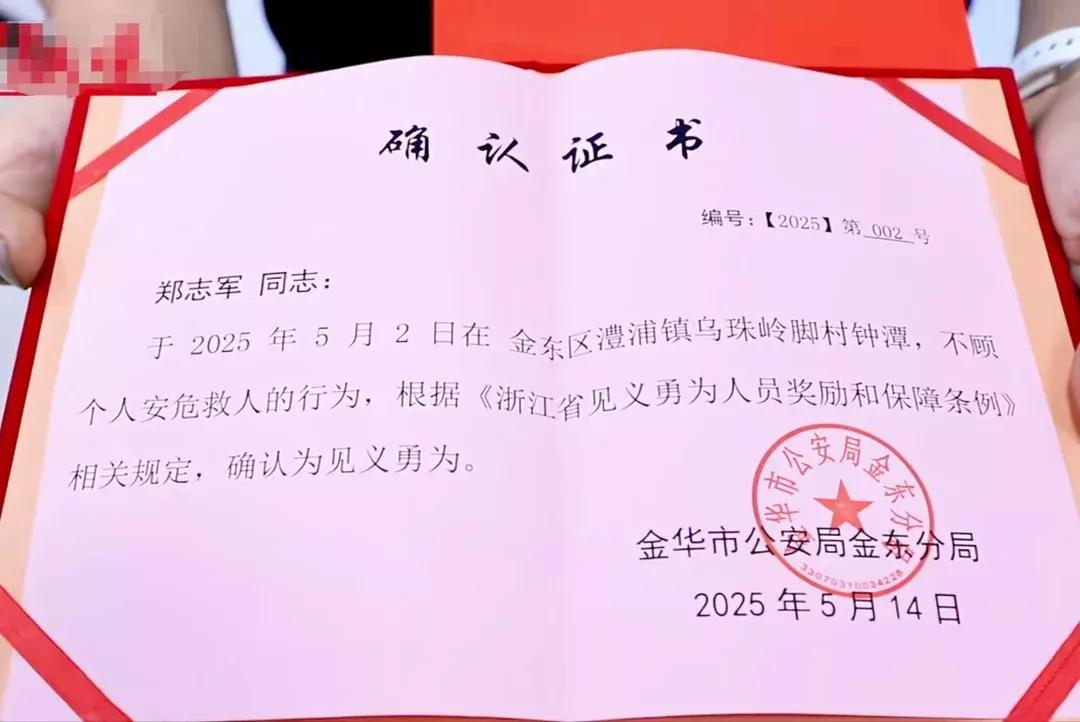 确认证书
编号：【2025】第 002 号
郑志军 同志：
于 2025 年 5 月 2 日在 金东区澧浦镇乌珠岭脚村钟潭，不顾
个人安危救人的行为，根据《浙江省见义勇为人员奖励和保障条例》
相关规定，确认为见义勇为。
金华市公安局金东分局
金华市公安局金东分局
2025 年 5 月 14 日
33070310034228